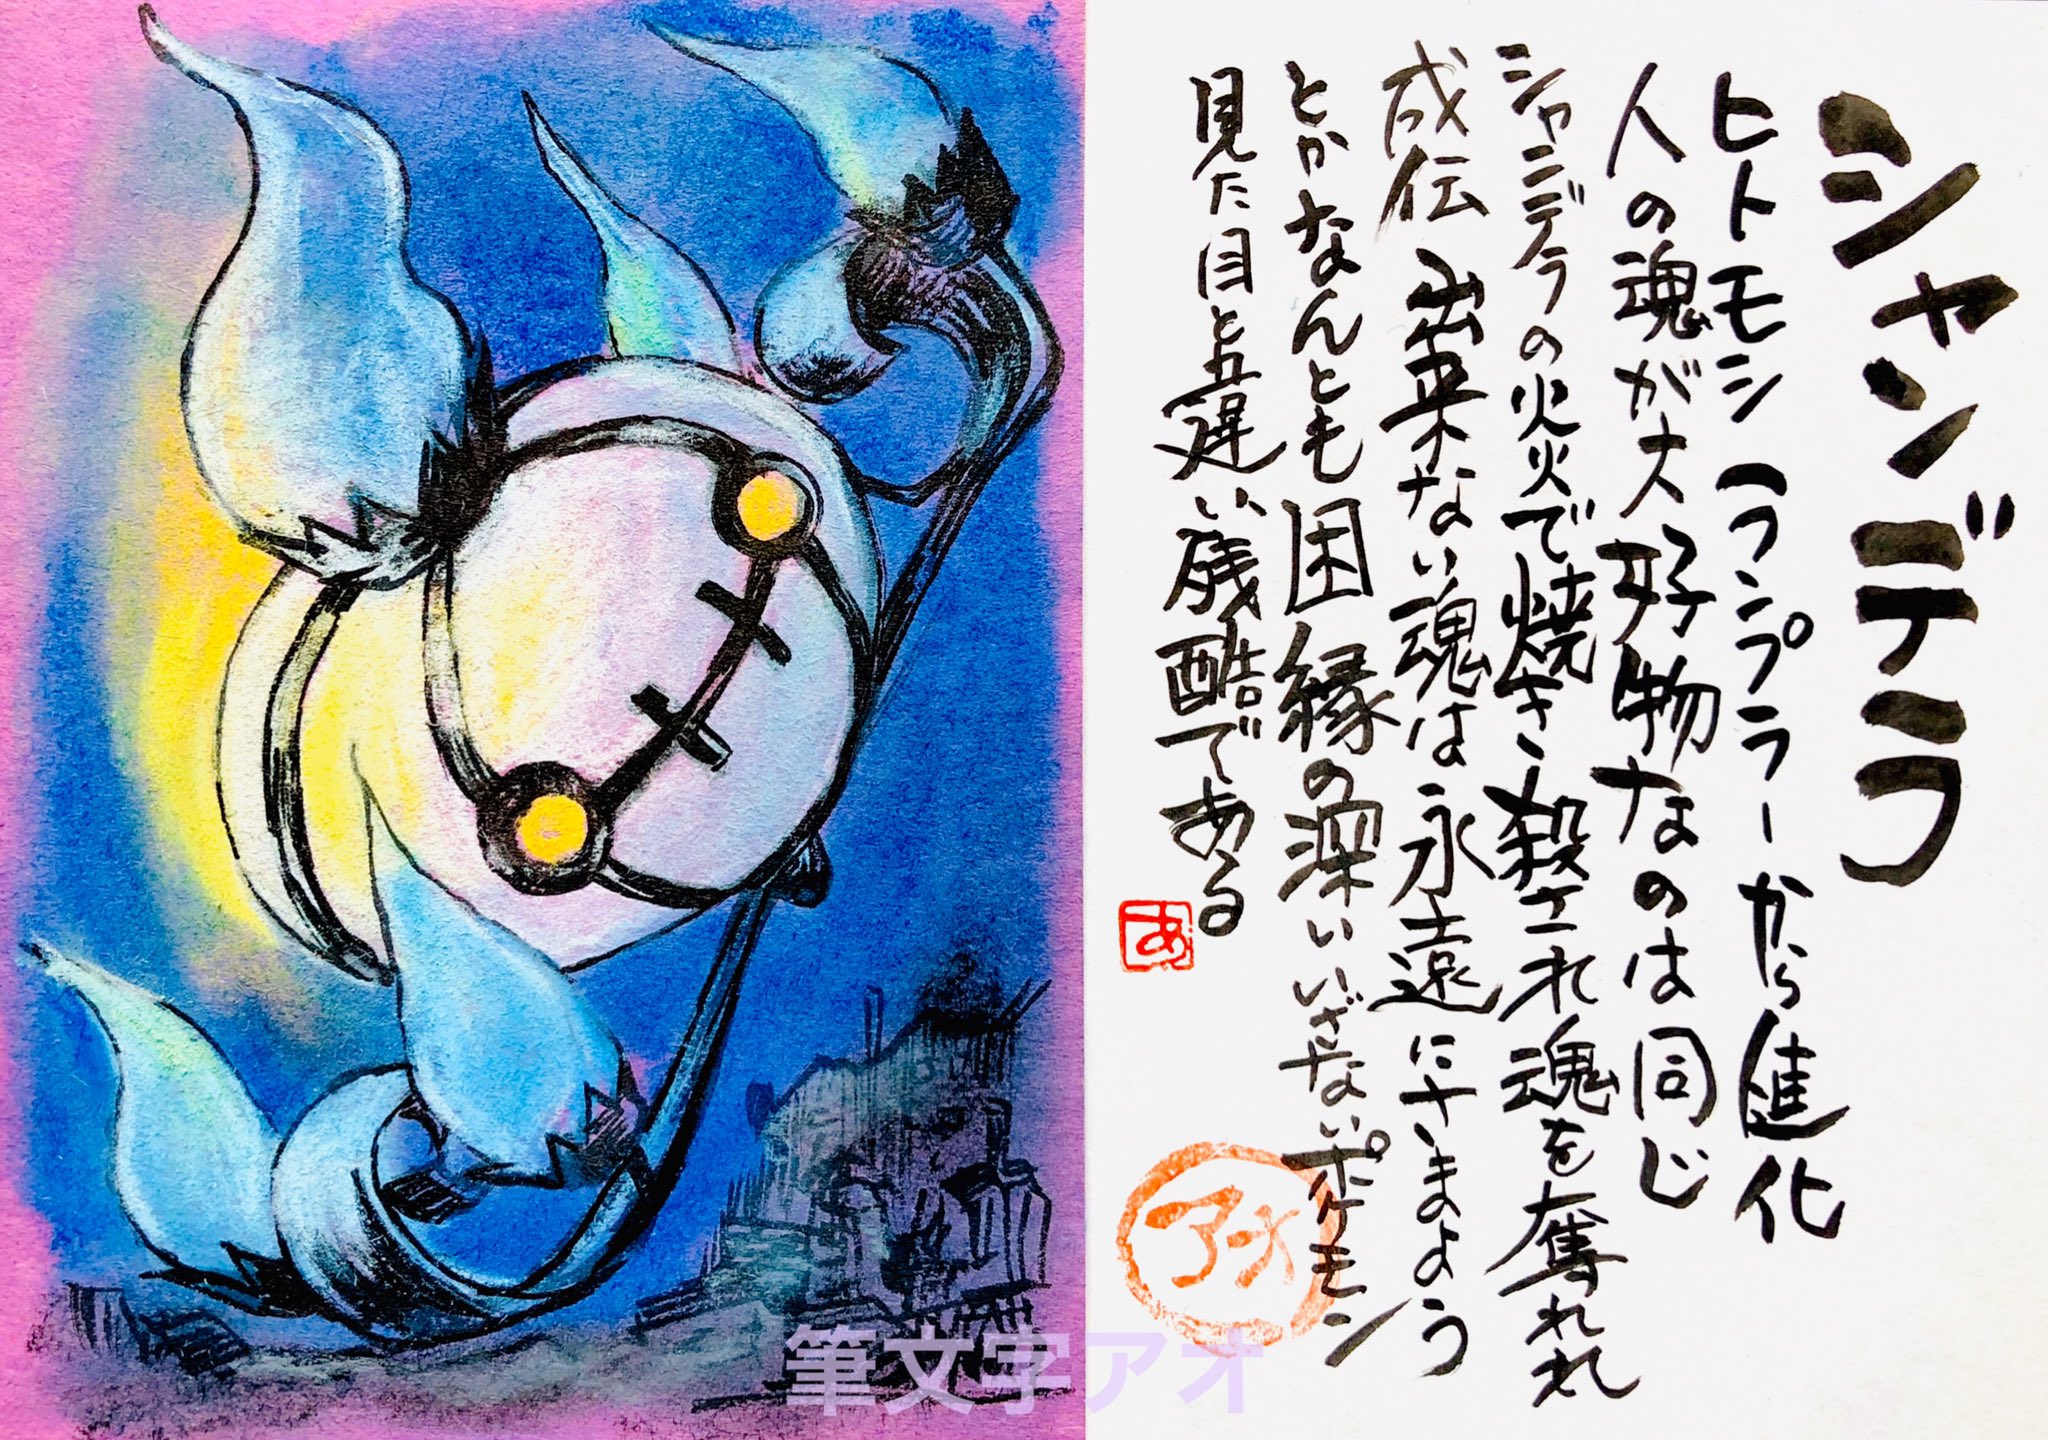 シャンデラ
ヒトモシ・ランプラーから進化
人の魂が大好物なのは同じ
シャンデラの火炎で焼き殺され魂を奪われ
成伝出来ない魂は永遠にさまよう
とかなんとも因縁の深いいざないポケモン
見た目と互違い残酷である
あ
アオ
筆文字アオ